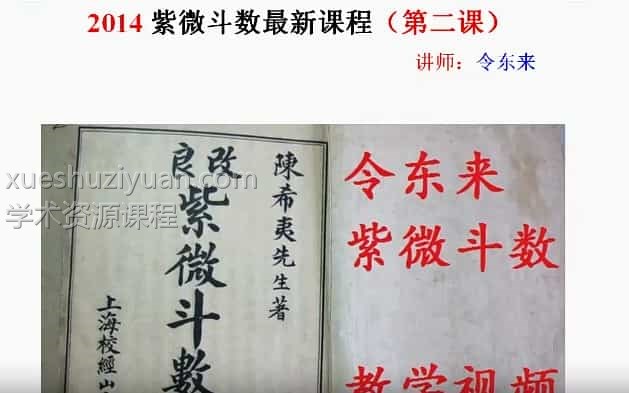 2014 紫微斗数最新课程（第二课）
讲师：令东来
xueshuziyuan.com
学术资源课程
陳希夷先生著
改良
紫微斗數
上海校經山
令东来
紫微斗数
教学视频